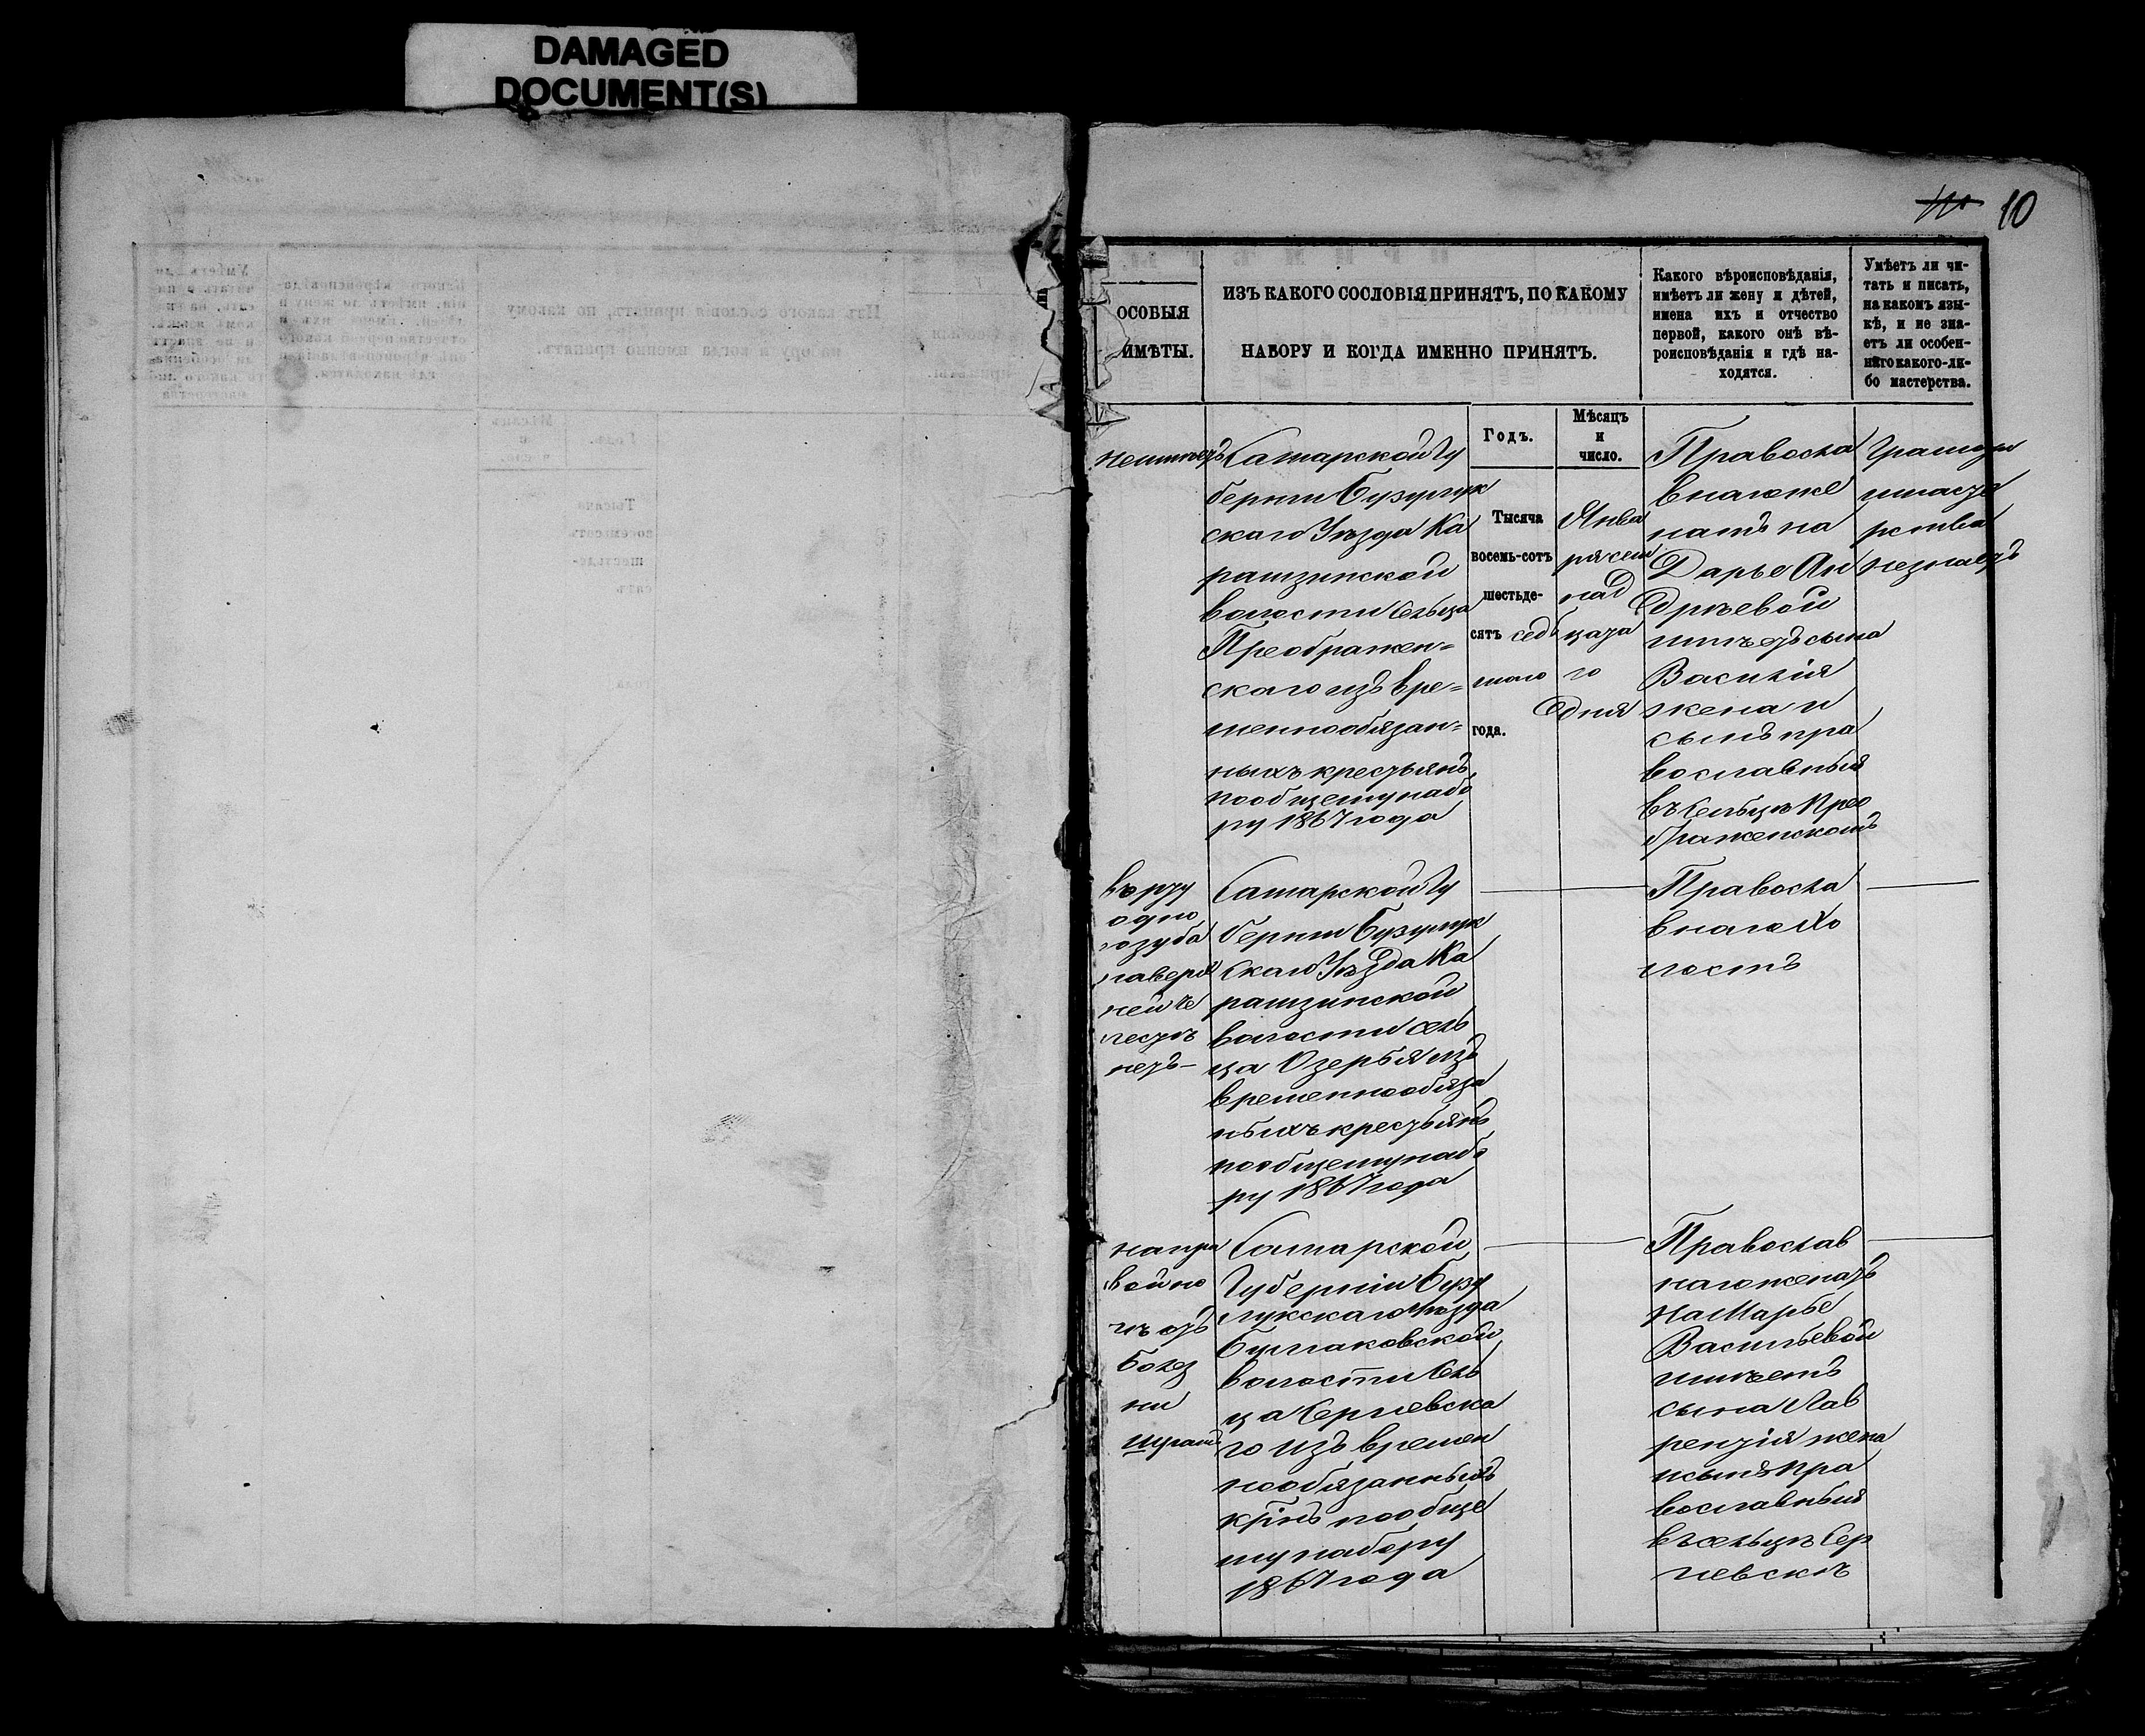 DAMAGED
DOCUMENT(S)
10
ОСОБЫЯ
ПРИМѢТЫ.
ИЗЪ КАКОГО СОСЛОВІЯ ПРИНЯТЪ, ПО КАКОМУ
НАБОРУ И КОГДА ИМЕННО ПРИНЯТЪ.
Какого вѣроисповѣданія,
имѣетъ ли жену и дѣтей,
имена ихъ и отчество
первой, какого онѣ вѣ-
роисповѣданія и гдѣ на-
ходятся.
Умѣетъ ли чи-
тать и писать,
на какомъ язы-
кѣ, и не зна-
етъ ли особен-
наго какого-ли-
бо мастерства.
Годъ.
Мѣсяцъ
и
число.
неимѣетъ
Самарской Гу
берніи Бузулук
скаго Уѣзда Ка
рамзинской
волости сельца
Преображен=
скаго изъ вре=
меннообязан=
ныхъ крестьянъ
по общему набо
ру 1867 года
Тысяча
восемь-сотъ
шестьде-
сятъ седь
маго
года.
Янва
ря сем
над
цата
го
Дня
Правосла
внаго же
натъ на
Дарье Ан
дрѣевой
имѣетъ сына
Василія
жена и
сынъ пра
вославныя
въ сельцѣ Прео
браженскомъ
Грамоты
имасте
рства
незнаетъ
во рту
одно
го зуба
на верх
ней че
лести
нетъ-
Самарской Гу
берніи Бузулук
скаго Уѣзда Ка
рамзинской
волости сель
ца Озерья изъ
временнообяза
ныхъ крестьянъ
по общему набо
ру 1867 года
Правосла
внаго Хо
лостъ
на пра
вой но
гѣ отъ
болез
ни
шрамъ
Самарской
Губерніи Бузу
лукскаго Уѣзда
Булгаковской
волости сель
ца Сергіевска
го изъ времен
нообязанныхъ
кр̃нъ по обще
му набору
1867 года
Православ
наго женатъ
На Марье
Васильевой
имѣетъ
сына Лав
рентія жена
и сынъ пра
вославныя
въ сельцѣ Сер
гіевскѣ